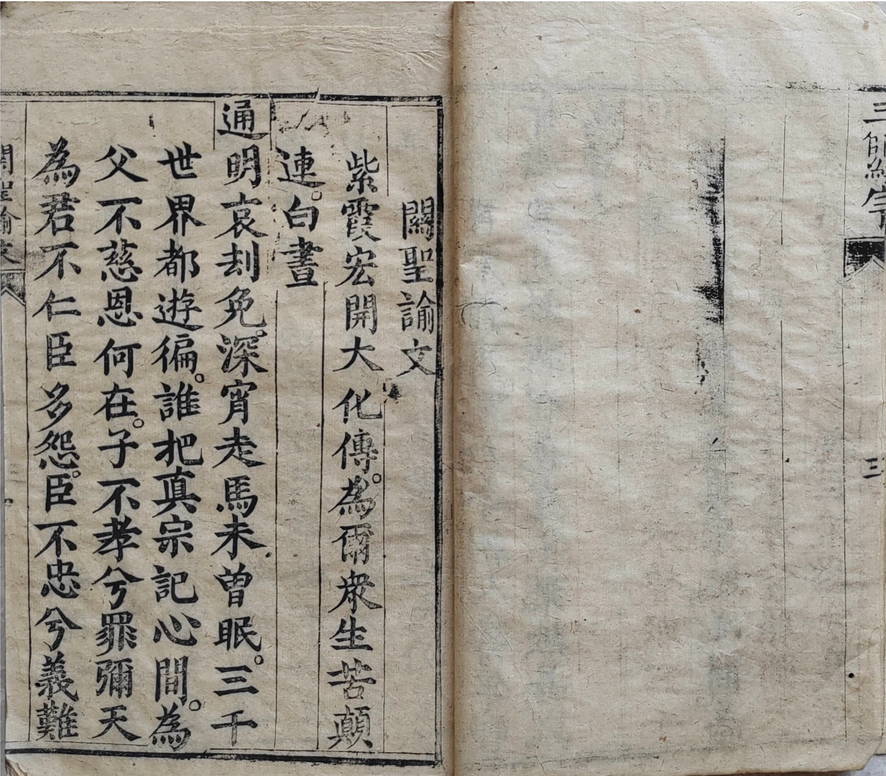 三
三
關聖諭文
紫霞宏開大化傳。為爾衆生苦顛
連。白晝
通明哀刦免。深宵走馬未曾眠。三千
世界都遊徧。誰把真宗記心間。為
父不慈恩何在。子不孝兮罪彌天
為君不仁臣多怨。臣不忠兮義難
關聖諭文